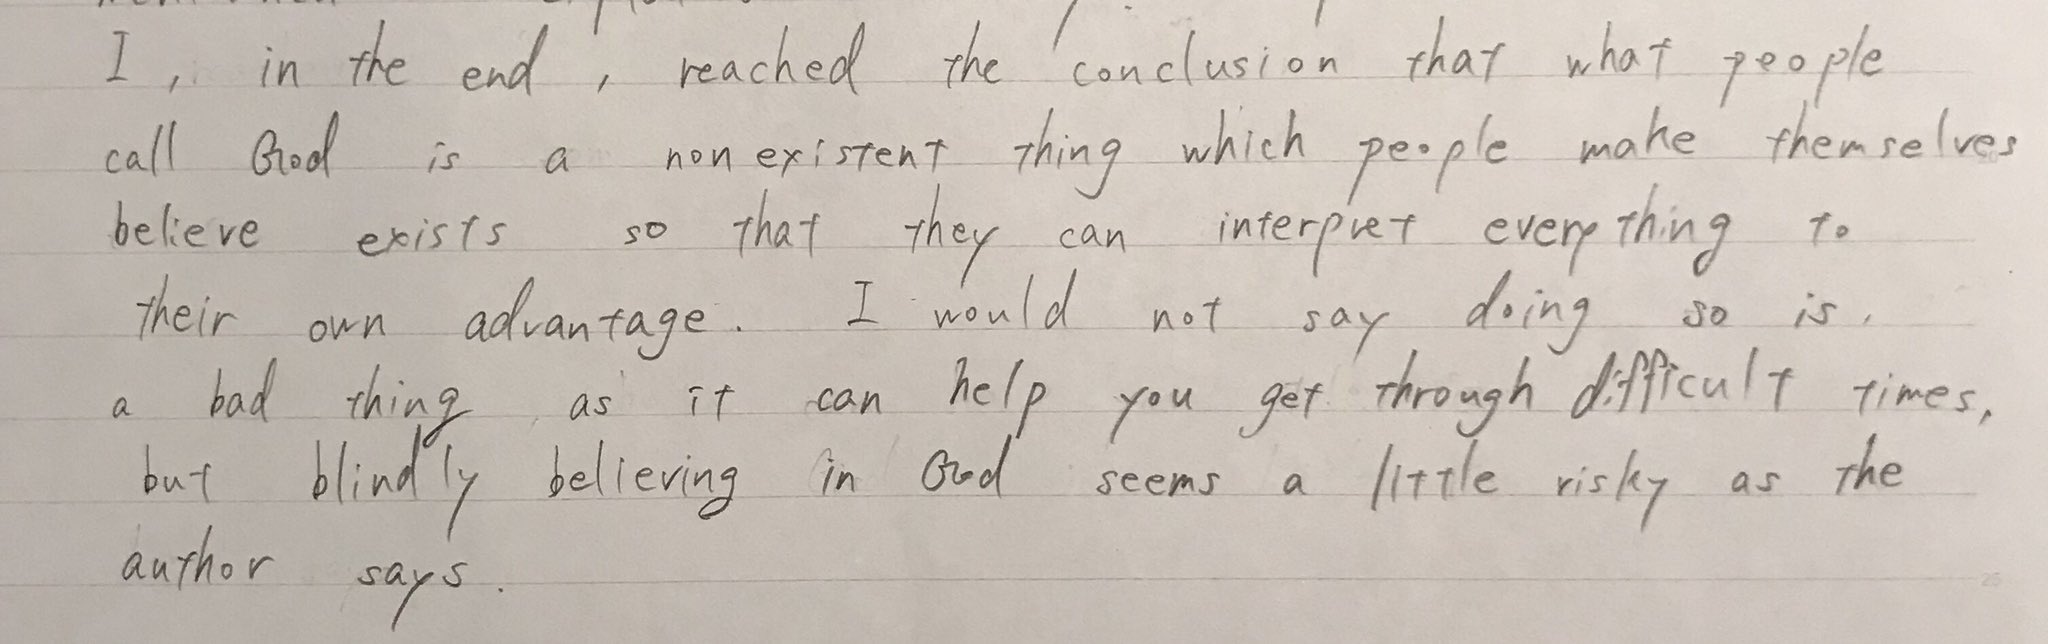 I, in the end, reached the conclusion that what people
call God is a nonexistent thing which people make themselves
believe exists so that they can interpret everything to
their own advantage. I would not say doing so is
a bad thing as it can help you get through difficult times,
but blindly believing in God seems a little risky as the
author says.